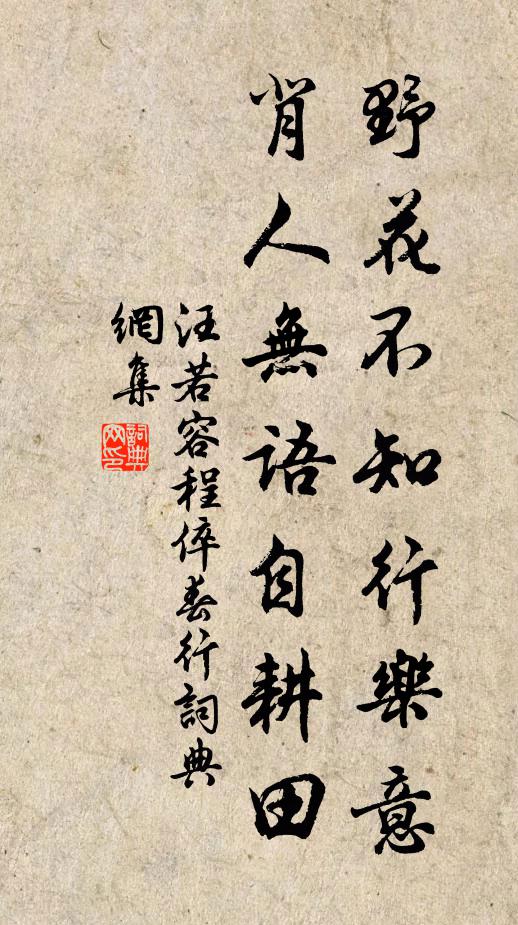 野花不知行樂意
肖人無語自耕田
汪若容程倅春行詞典
網集
詞典
网印